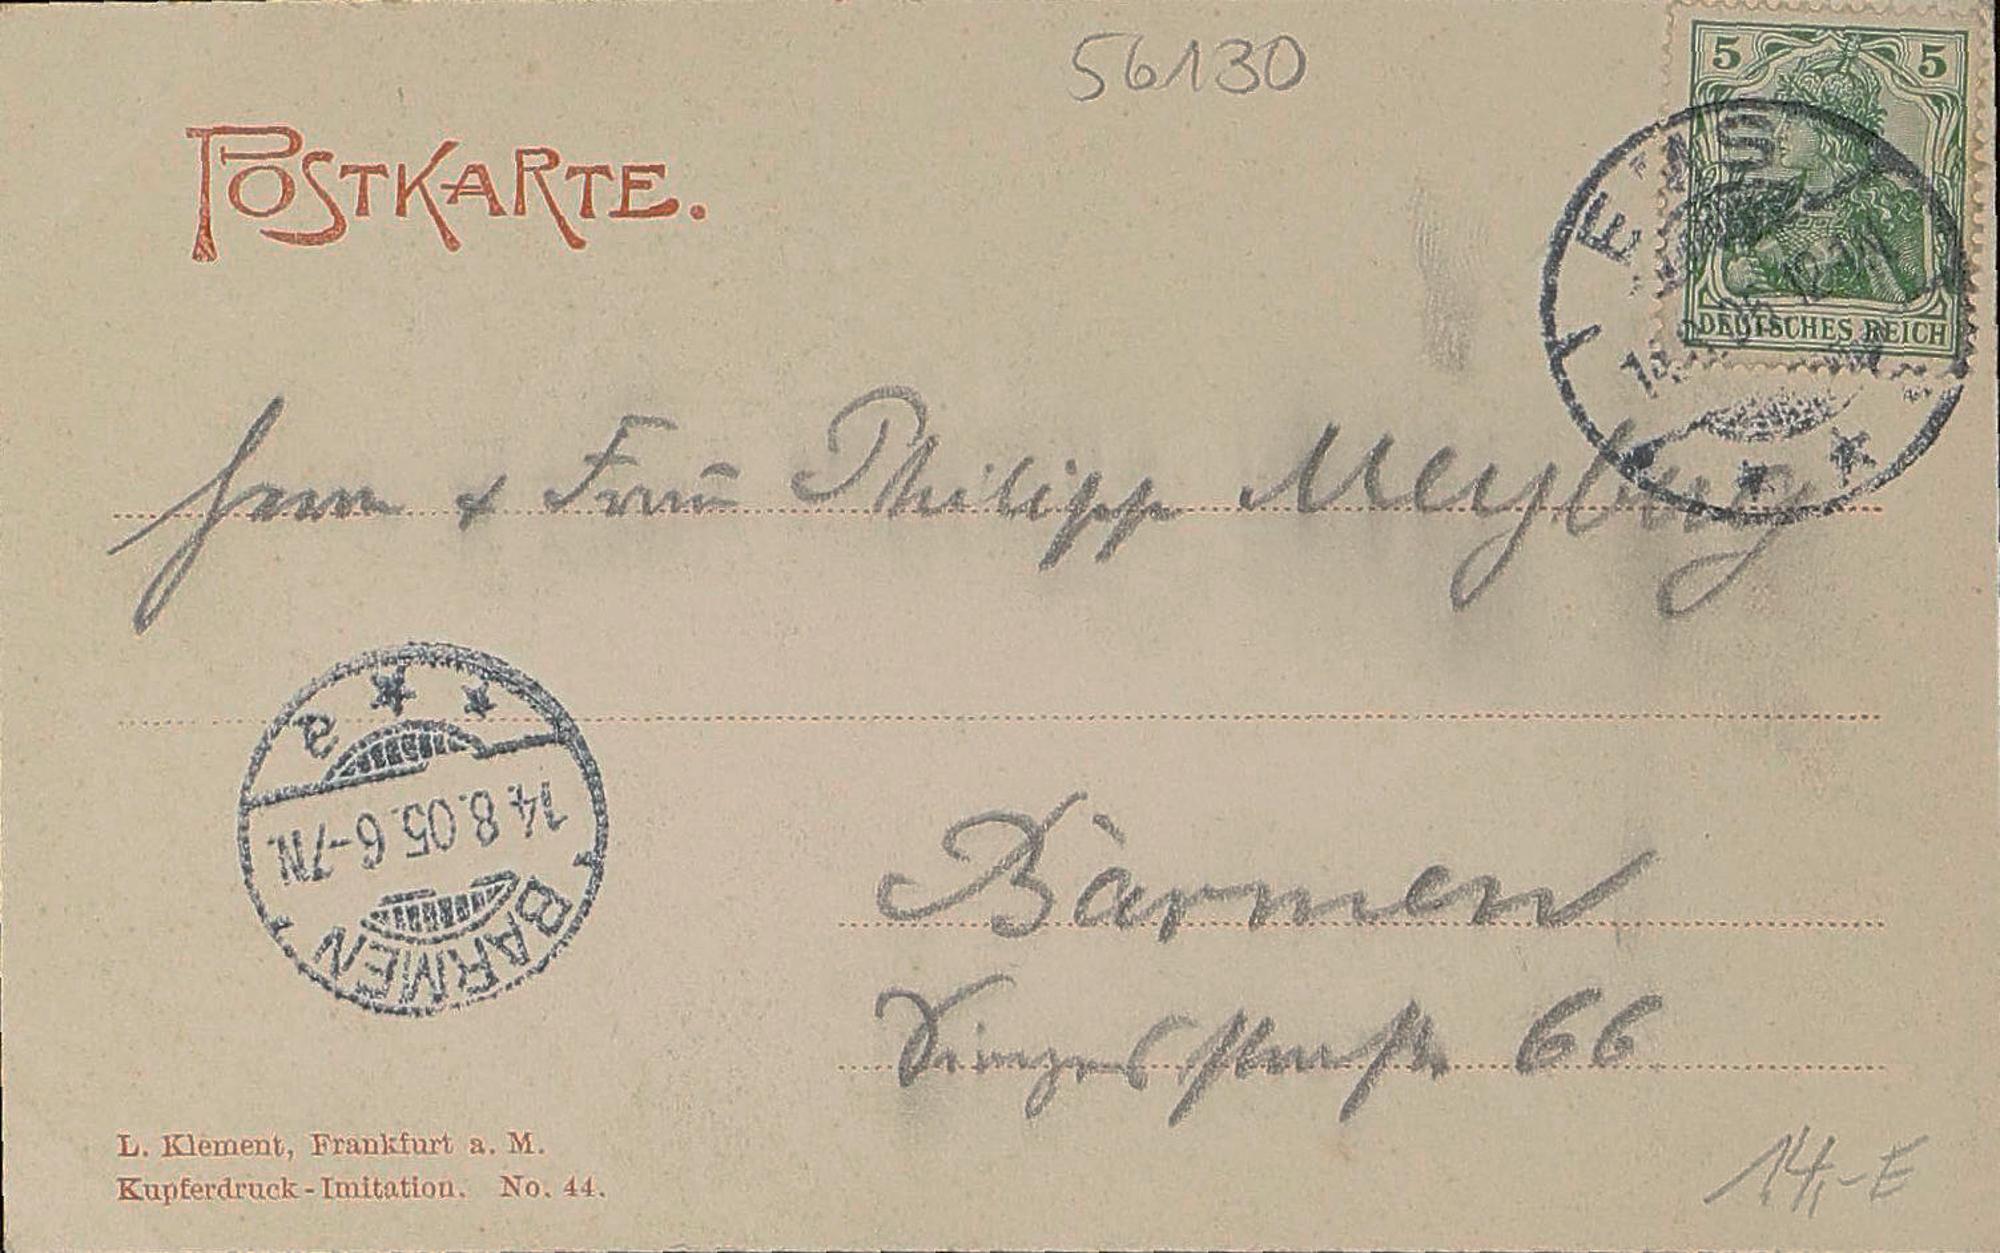 56130
5 5
DEUTSCHES REICH
EMS
POSTKARTE.
Herrn & Frau Philipp Meyburg
a
14.8.05.6-7N.
BARMEN
Barmen
66
L. Klement, Frankfurt a. M.
Kupferdruck-Imitation. No. 44.
14,-E